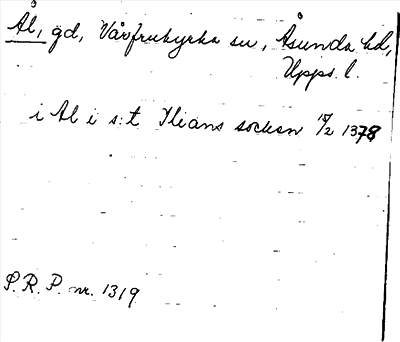 Ål, gd, Vårfrukyrka sn, Åsunda hd,
Upps. l.
i Al i s:t Ilians socken 15/2 1378
P.R.P. nr. 1319